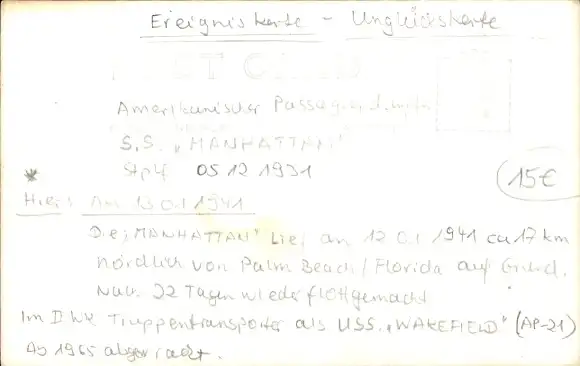 Ereigniskarte - Unglückskarte
Amerikanischer Passagierdampfer
S.S. „MANHATTAN"
Stplf 05 12 1931
15€
Hier: Am 13 01 1941
Die „MANHATTAN" Lief am 12 01 1941 ca 17 km
nördlich von Palm Beach / Florida auf Grund.
Nach 22 Tagen wieder flottgemacht
Im II WK Truppentransporter als USS. „WAKEFIELD" (AP-21)
Ab 1965 abgewrackt.